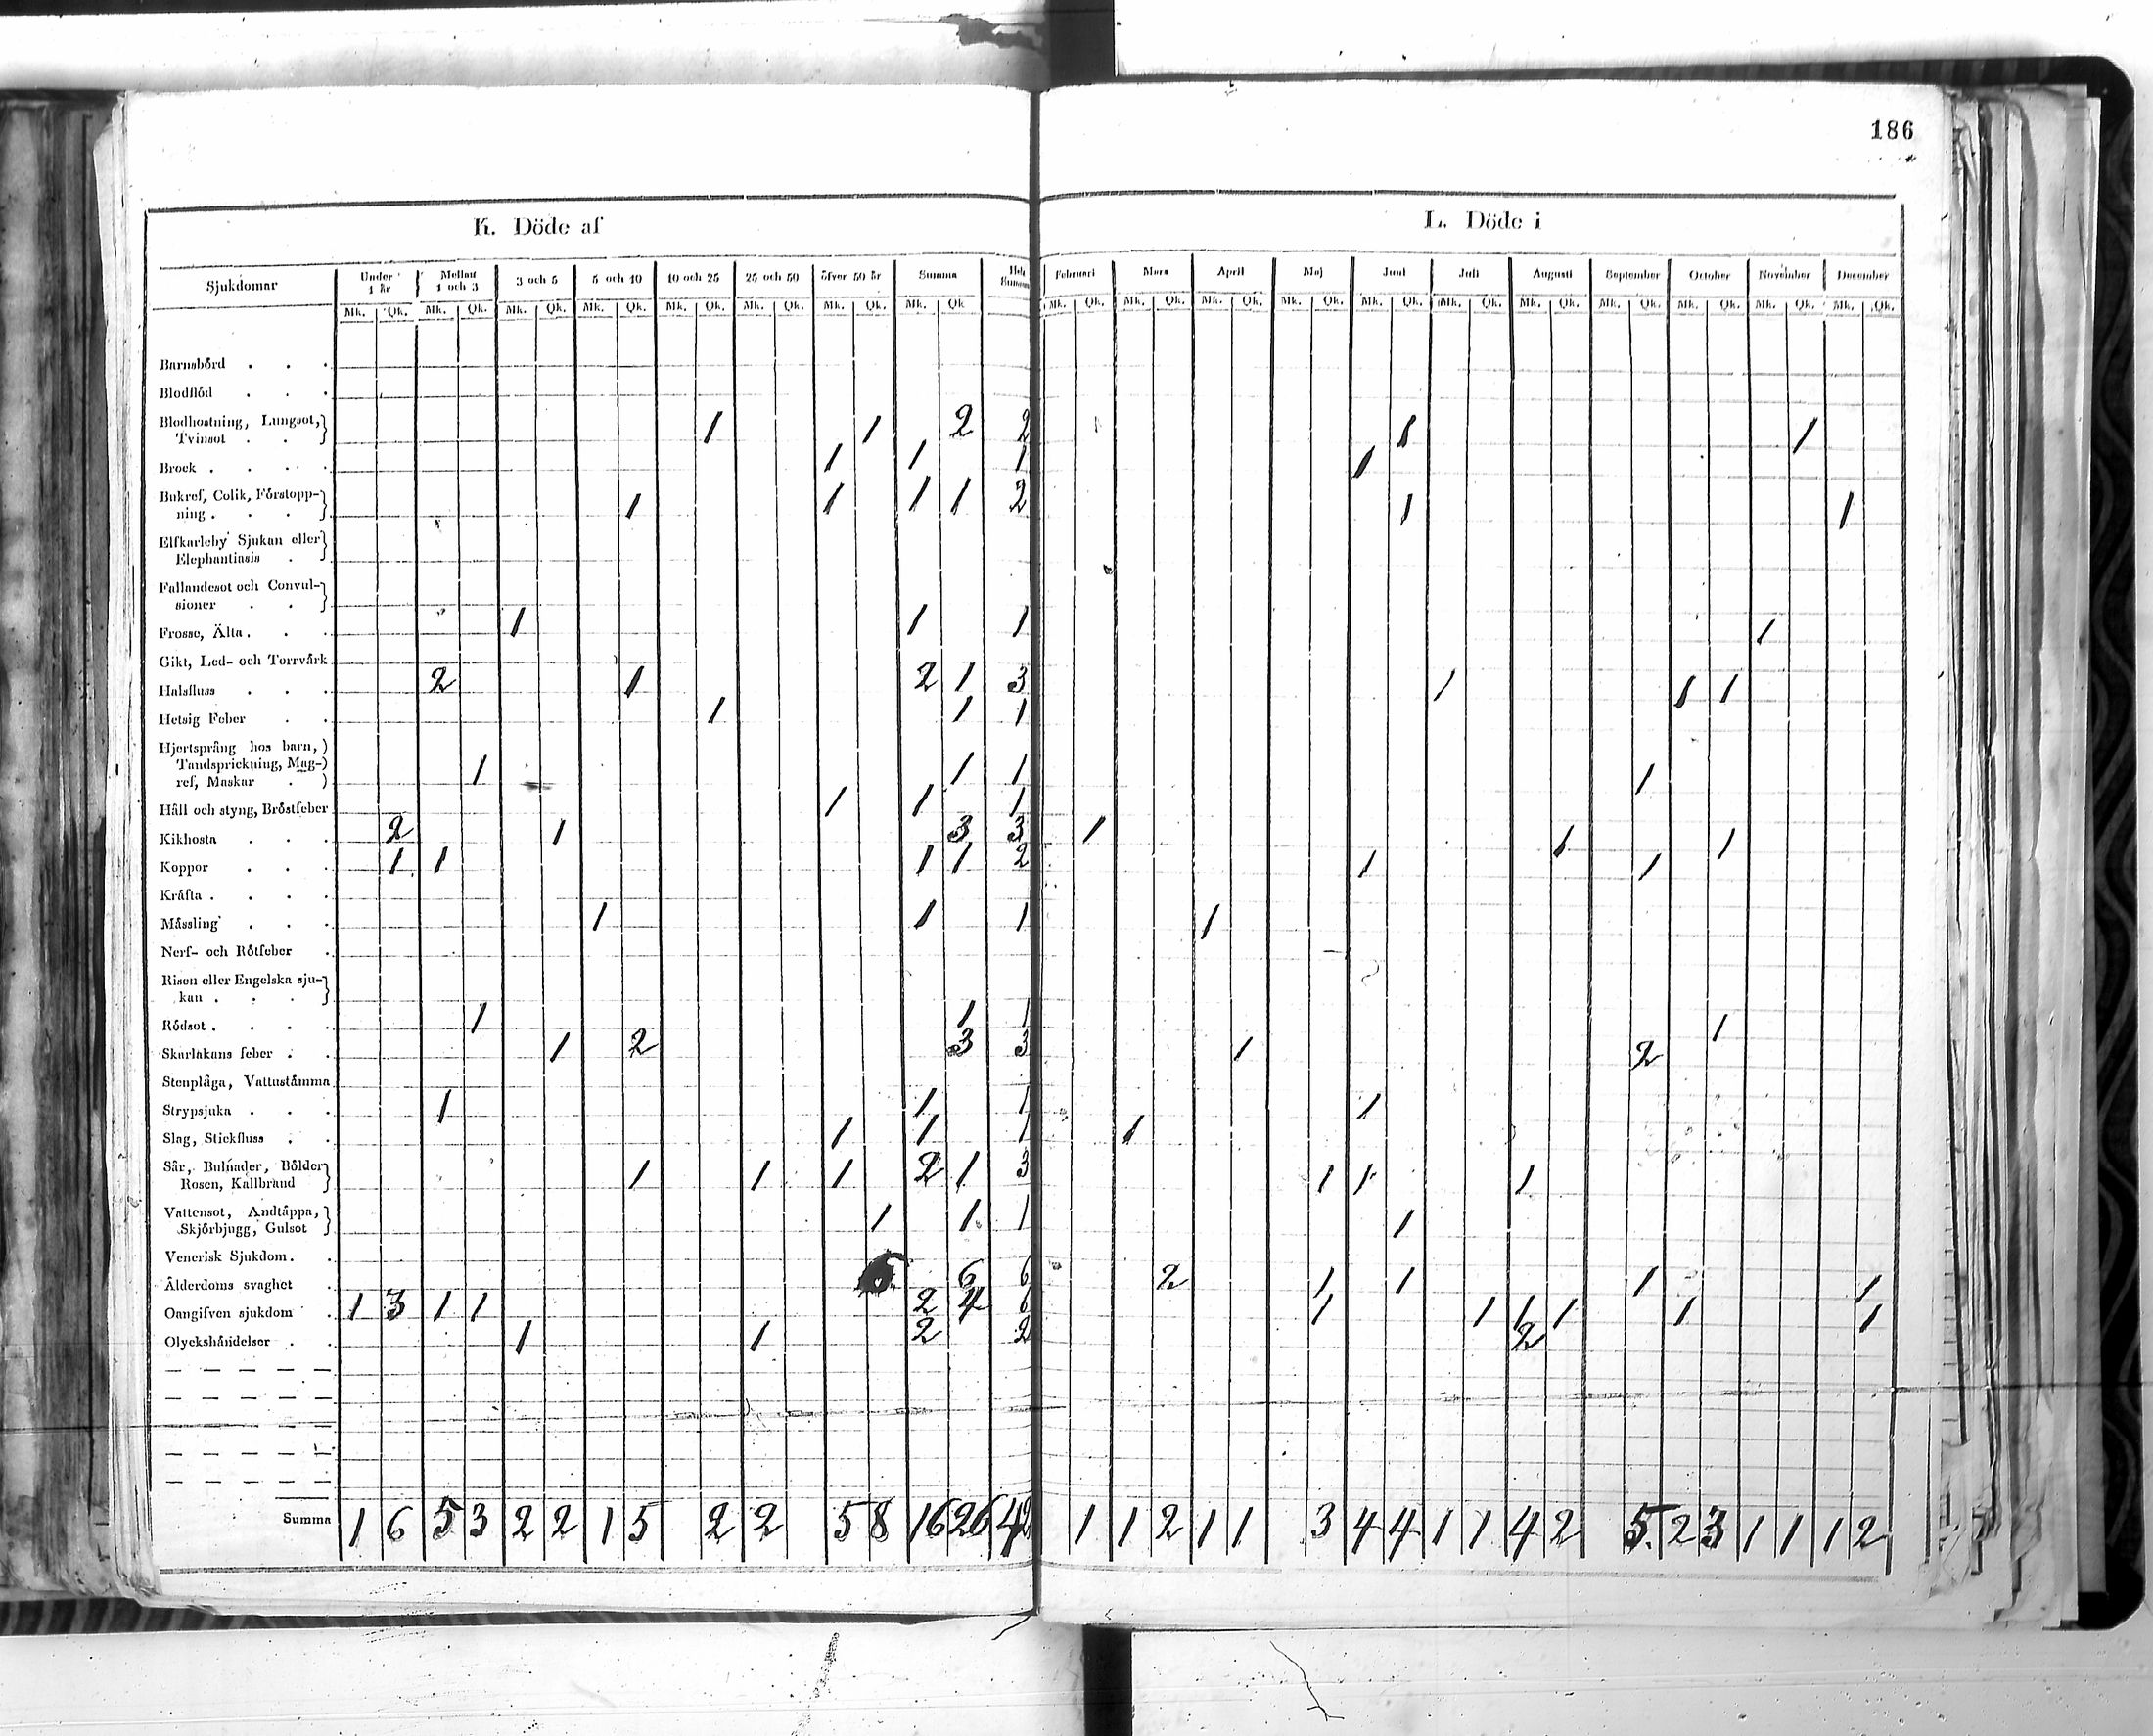 186
K. Döde af
L. Döde i
Sjukdomar Under 1 år Mellan 1 och 3 3 och 5 5 och 10 10 och 25 25 och 50 öfver 50 år Summa Hela Februari Mars April Maj Juni Juli Augusti September October November December
Mk. Qk. Mk. Qk. Mk. Qk. Mk. Qk. Mk. Qk. Mk. Qk. Mk. Qk. Mk. Qk Mk. Qk. Mk. Qk. Mk. Qk. Mk. Qk. Mk. Qk. Mk. Qk. Mk. Qk. Mk. Qk. Mk. Qk. Mk. Qk. Mk. Qk.
Barnsbörd . . .
Blodflöd . . .
Blodhostning, Lungsot,
Tvinsot . . 1 1 2 2 1 1
Brock . . . . 1 1 1 1
Bukref, Colik, Förstopp-
ning . . . 1 1 1 1 2 1 1
Elfkarleby Sjukan eller
Elephantiasis .
Fallandesot och Convul-
sioner . .
Frosse, Älta . . . 1 1 1 1
Gikt, Led- och Torrvärk
Halsfluss . . . 2 1 2 1 3 1 1 1
Hetsig Feber . . 1 1 1
Hjertsprång hos barn,
Tandsprickning, Mag-
ref, Maskar . 1 1 1 1
Håll och styng, Bröstfeber 1 1 1
Kikhosta . . . 2 1 3 3 1 1 1
Koppor . . . 1 1 1 1 2 1 1
Kräfta . . . .
Mässling . . . 1 1 1 1
Nerf- och Rötfeber .
Risen eller Engelska sju-
kan . . .
Rödsot . . . . 1 1 1 1
Skarlakans feber . . 1 2 3 3 1 2
Stenplåga, Vattustämma
Strypsjuka . . . 1 1 1 1
Slag, Stickfluss . . 1 1 1 1
Sår, Bulnader, Bölder
Rosen, Kallbrand 1 1 1 2 1 3 1 1 1
Vattensot, Andtäppa,
Skjörbjugg, Gulsot 1 1 1 1
Venerisk Sjukdom . .
Ålderdoms svaghet . 6 6 6 2 1 1 1 1
Oangifven sjukdom . 1 3 1 1 2 4 6 1 1 1 1 1 1
Olyckshändelser . . 1 1 2 2 2
Summa 1 6 5 3 2 2 1 5 2 2 5 8 16 26 42 1 1 2 1 1 3 4 4 1 1 4 2 5. 2 3 1 1 1 2